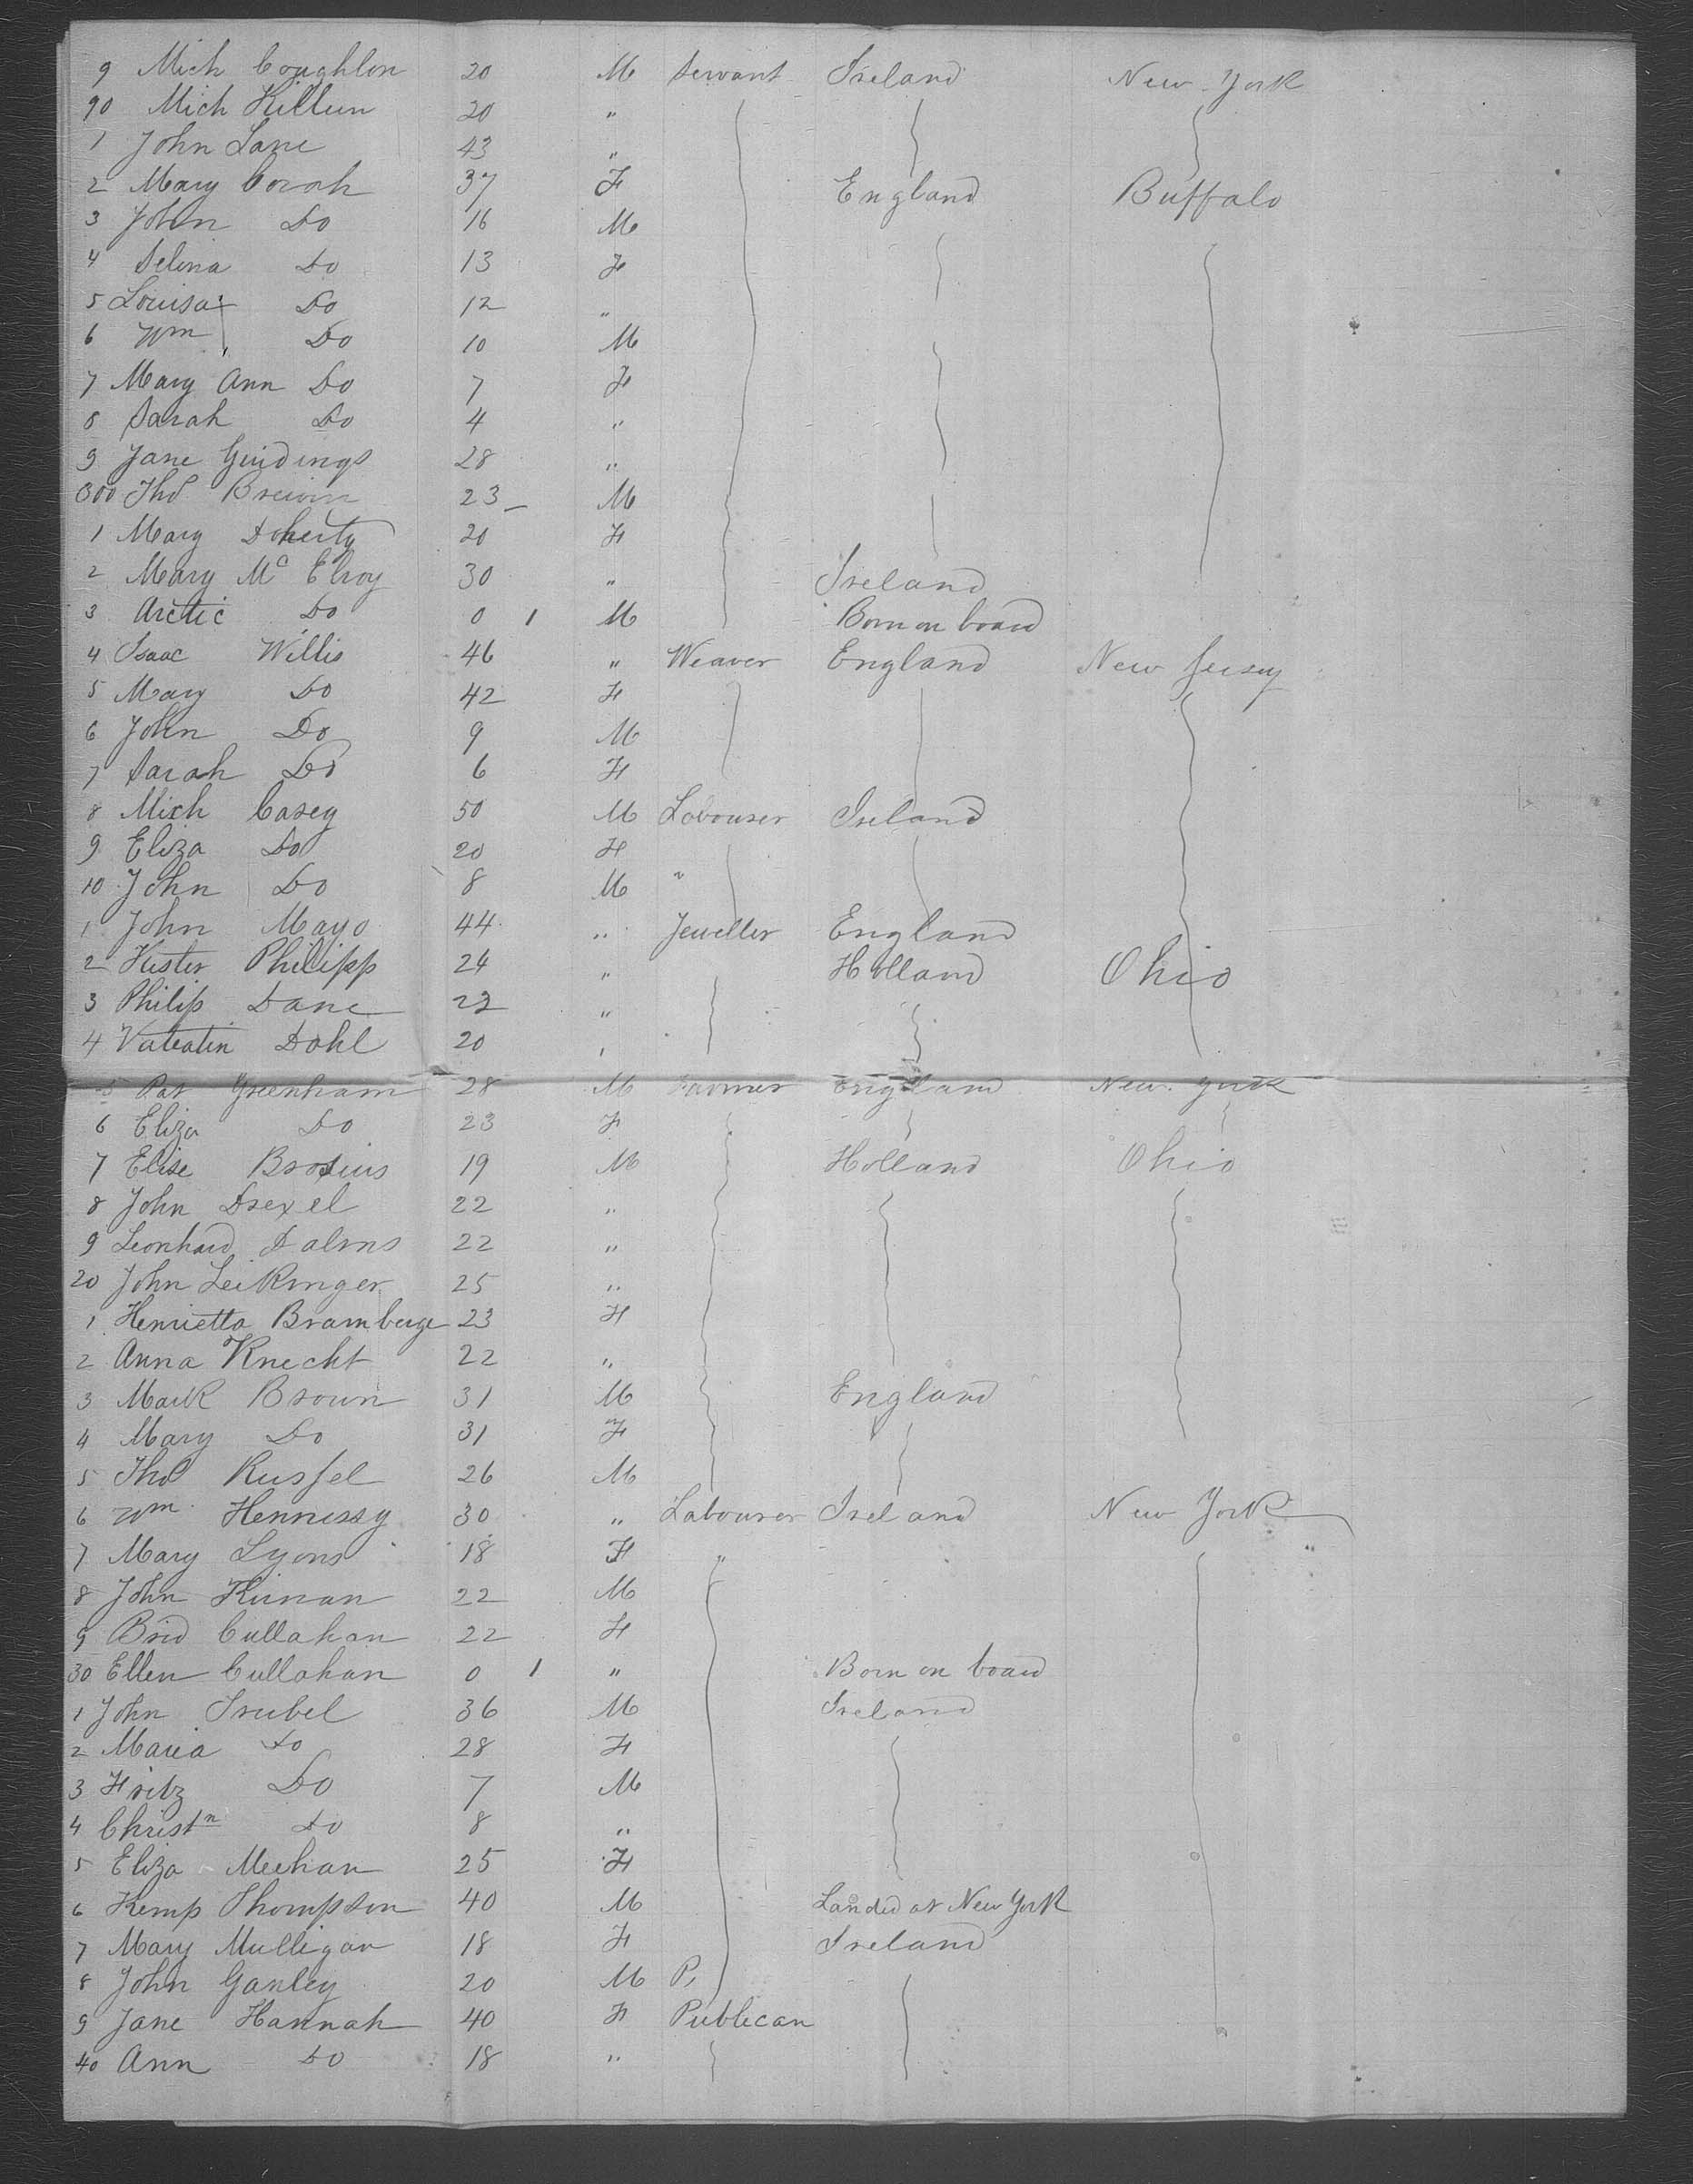 9 Mich Coughlon 20 M Servant Ireland New York
90 Mich Killeen 20 "
1 John Lane 43 "
2 Mary Corah 37 F England Buffalo
3 John Do 16 M
4 Selina Do 13 F
5 Louisa Do 12 "
6 Wm Do 10 M
7 Mary Ann Do 7 F
8 Sarah Do 4 "
9 Jane Giddings 28 "
300 Thos 23 M
1 Mary Doherty 20 F
2 Mary Mc Elroy 30 " Ireland
3 Arctic Do 0 1 M Born on board
4 Isaac Willis 46 " Weaver England New Jersey
5 Mary Do 42 F
6 John Do 9 M
7 Sarah Do 6 F
8 Mich Casey 50 M Labourer Ireland
9 Eliza Do 20 F
10 John Do 8 M "
1 John Mayo 44 " Jeweller England
2 Philipp 24 " Holland Ohio
3 Philip Dane 22 "
4 Dohl 20 "
5 Pat Greenham 28 M Farmer England New York
6 Eliza Do 23 F
7 Elise Brosius 19 M Holland Ohio
8 John Drexel 22 "
9 Leonhard 22 "
20 John Leikinger 25 "
1 Henrietta Bramberge 23 F
2 Anna Knecht 22 "
3 Mark Brown 31 M England
4 Mary Do 31 F
5 Thos Russel 26 M
6 Wm Hennessy 30 " Labourer Ireland New York
7 Mary Lyons 18 F "
8 John Kinnan 22 M
9 Brid Cullahan 22 F
30 Ellen Cullahan 0 1 " Born on board
1 John Strubel 36 M Ireland
2 Maria Do 28 F
3 Fritz Do 7 M
4 Christn Do 8 "
5 Eliza Meehan 25 F
6 Kemp Thompson 40 M Landed at New York
7 Mary Mulligan 18 F Ireland
8 John Ganley 20 M P,
9 Jane Hannah 40 F Publican
40 Ann Do 18 "